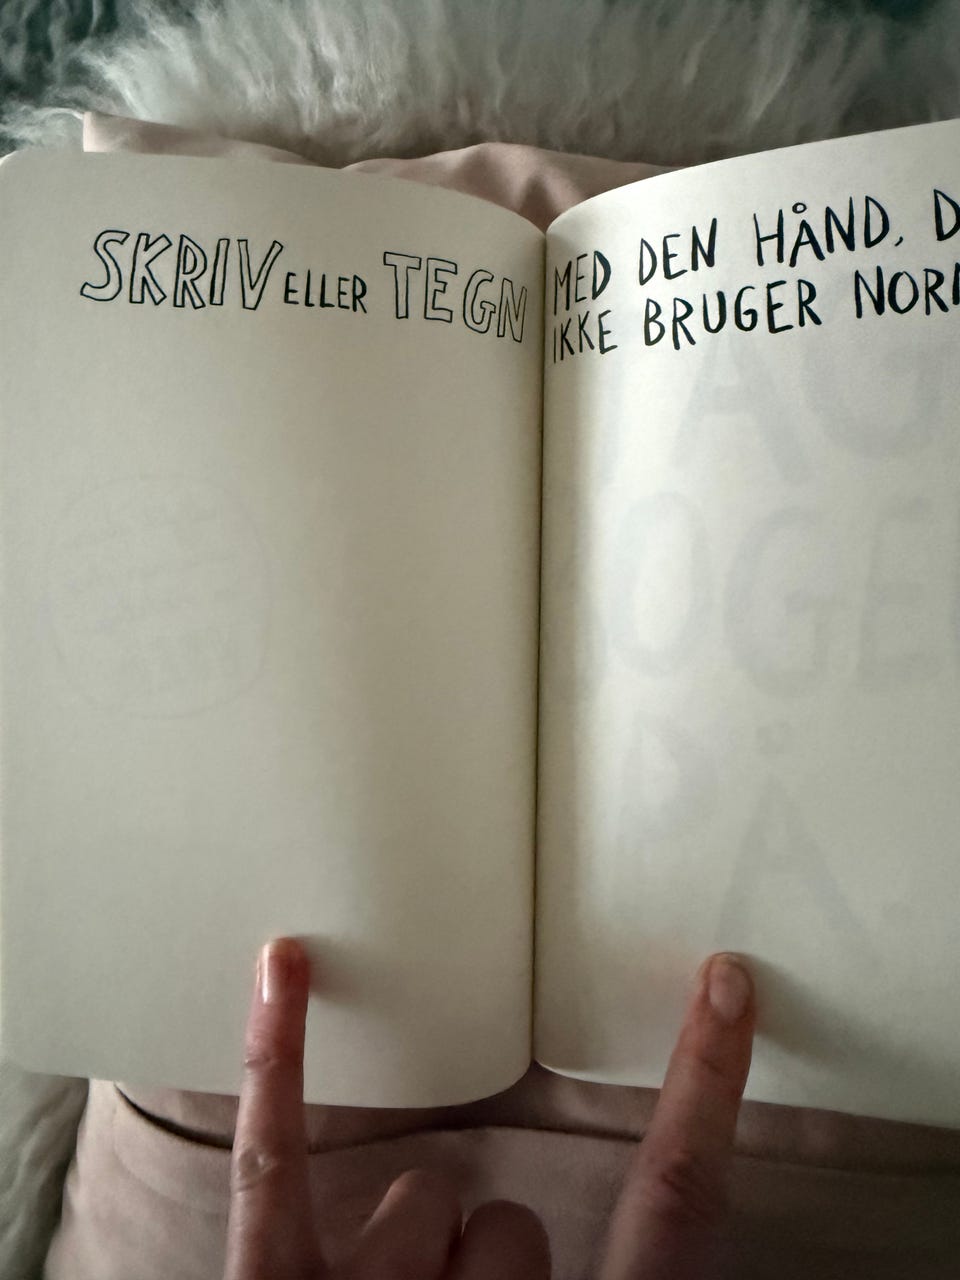 SKRIV ELLER TEGN
MED DEN HÅND,
IKKE BRUGER